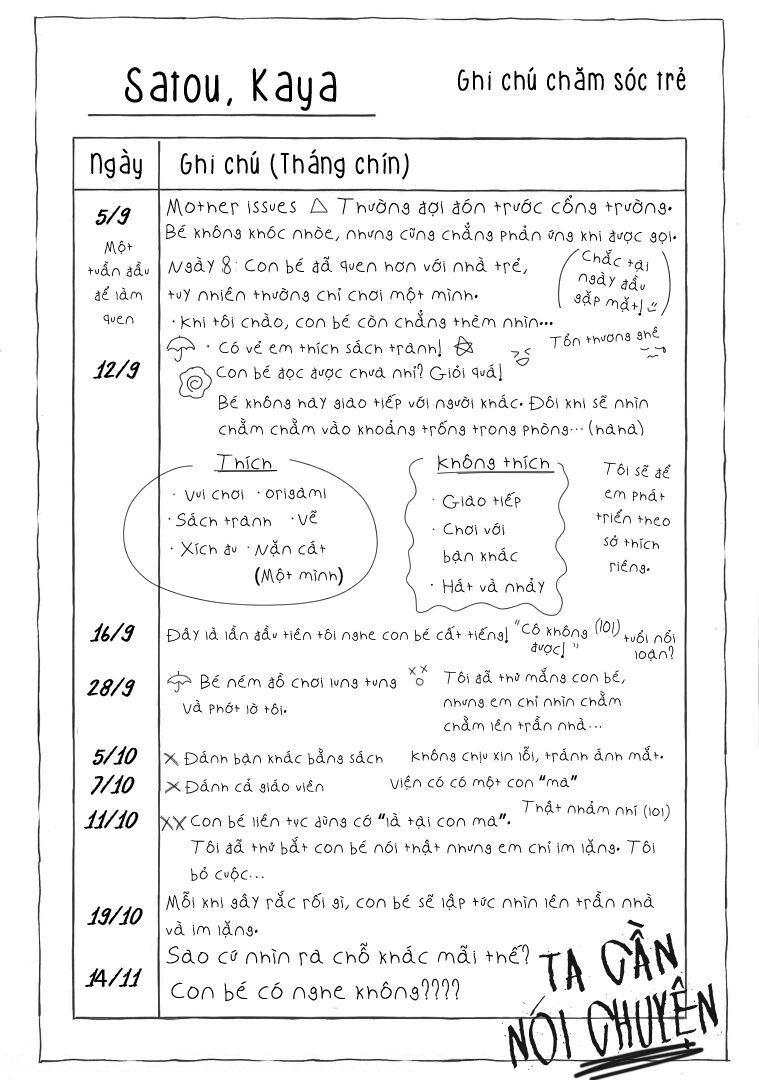 Satou, Kaya
Ghi chú chăm sóc trẻ
Ngày
Ghi chú (Tháng chín)
5/9
Một
tuần đầu
để làm
quen
Mother issues △ Thường đợi đón trước cổng trường.
Bé không khóc nhòe, nhưng cũng chẳng phản ứng khi được gọi.
Ngày 8: Con bé đã quen hơn với nhà trẻ,
tuy nhiên thường chỉ chơi một mình.
Chắc tại
ngày đầu
gặp mặt!
· Khi tôi chào, con bé còn chẳng thèm nhìn...
Tổn thương ghê
· Có vẻ em thích sách tranh!
12/9
Con bé đọc được chưa nhỉ? Giỏi quá!
Bé không hay giao tiếp với người khác. Đôi khi sẽ nhìn
chằm chằm vào khoảng trống trong phòng... (haha)
Thích
· Vui chơi · Origami
· Sách tranh · Vẽ
· Xích đu · Nặn cát
(Một mình)
Không thích
· Giao tiếp
· Chơi với
bạn khác
· Hát và nhảy
Tôi sẽ để
em phát
triển theo
sở thích
riêng.
16/9
Đây là lần đầu tiên tôi nghe con bé cất tiếng!
"Cô không
được!"
(lol)
tuổi nổi
loạn?
28/9
Bé ném đồ chơi lung tung
và phớt lờ tôi.
Tôi đã thử mắng con bé,
nhưng em chỉ nhìn chằm
chằm lên trần nhà...
5/10
X Đánh bạn khác bằng sách
Không chịu xin lỗi, tránh ánh mắt.
7/10
X Đánh cả giáo viên
Viện cớ có một con "ma"
11/10
XX Con bé liên tục dùng cớ "là tại con ma".
Thật nhảm nhí (lol)
Tôi đã thử bắt con bé nói thật nhưng em chỉ im lặng. Tôi
bỏ cuộc...
19/10
Mỗi khi gây rắc rối gì, con bé sẽ lập tức nhìn lên trần nhà
và im lặng.
14/11
Sao cứ nhìn ra chỗ khác mãi thế?
Con bé có nghe không????
TA CẦN
NÓI CHUYỆN